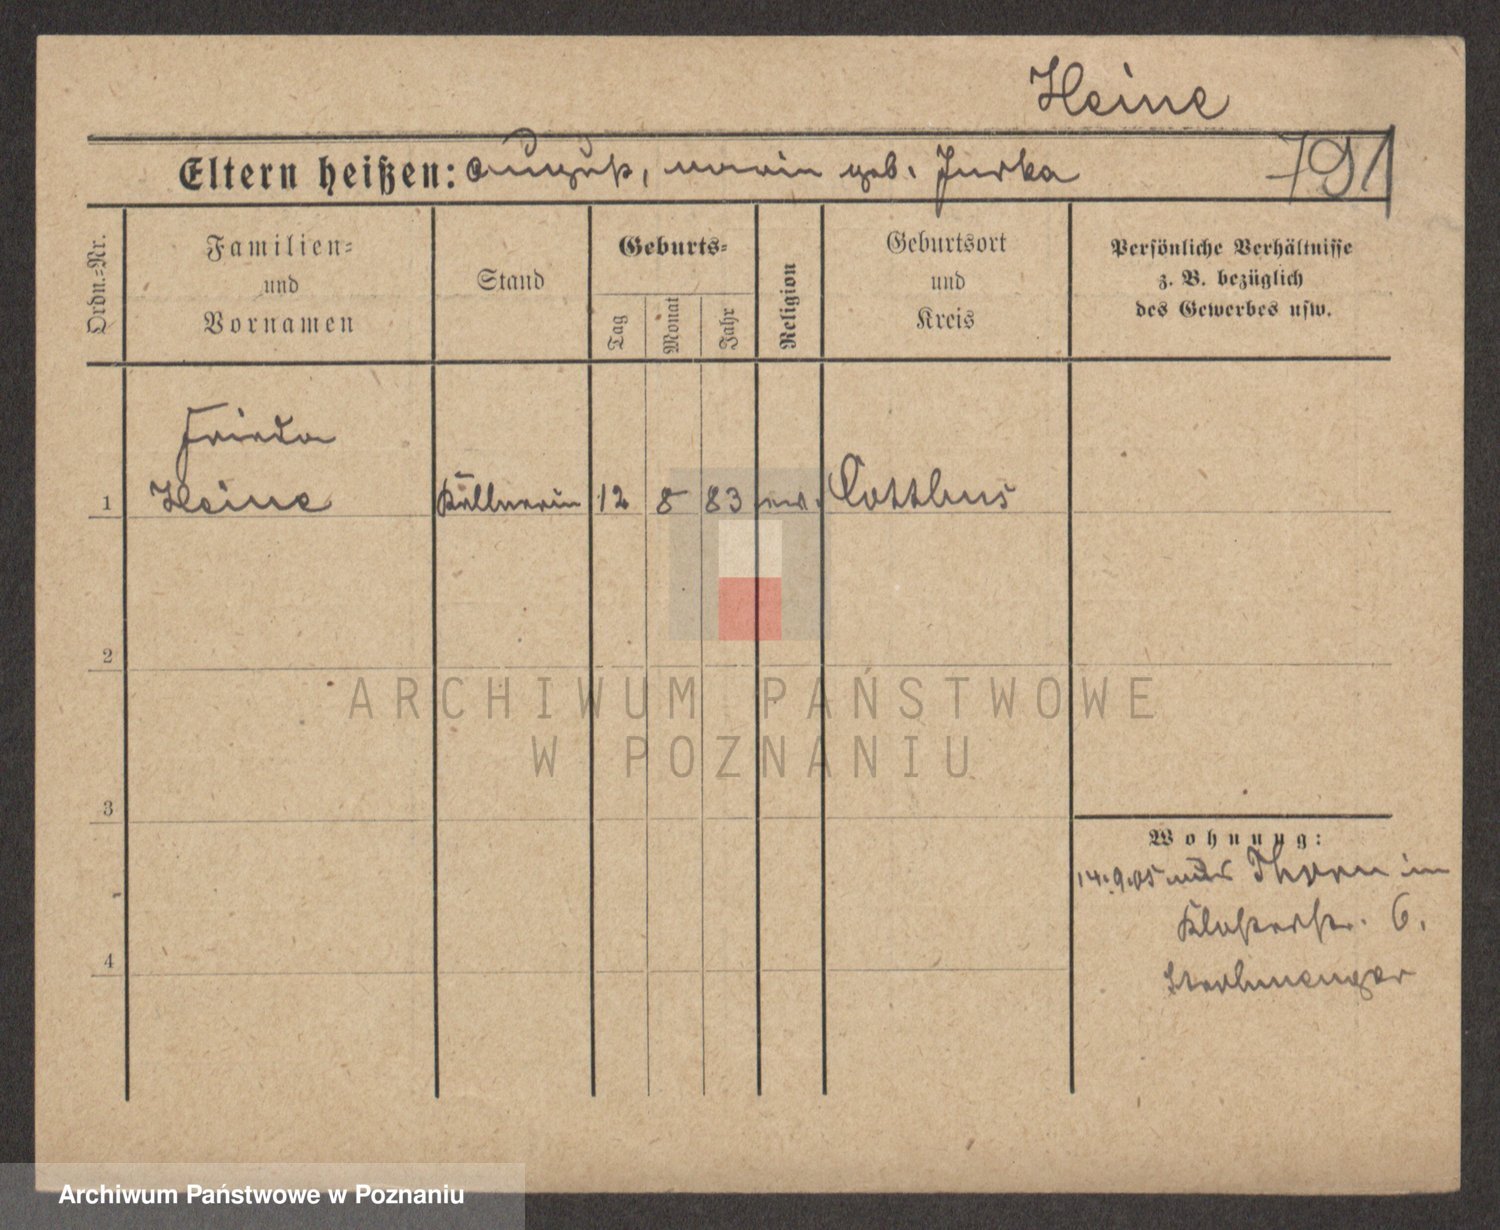 Heine
Eltern heißen: August, Marie geb. Jurka
791
Ordn.=Nr.
Familien=
und
Vornamen
Stand
Geburts=
Tag
Monat
Jahr
Religion
Geburtsort
und
Kreis
Persönliche Verhältnisse
z. B. bezüglich
des Gewerbes usw.
Frieda
1 Heine Kellnerin 12 8 83 ev. Cottbus
2
3
4
Wohnung:
14.9.05 aus Thorn in
Klosterstr. 6.
ARCHIWUM PAŃSTWOWE
W POZNANIU
Archiwum Państwowe w Poznaniu